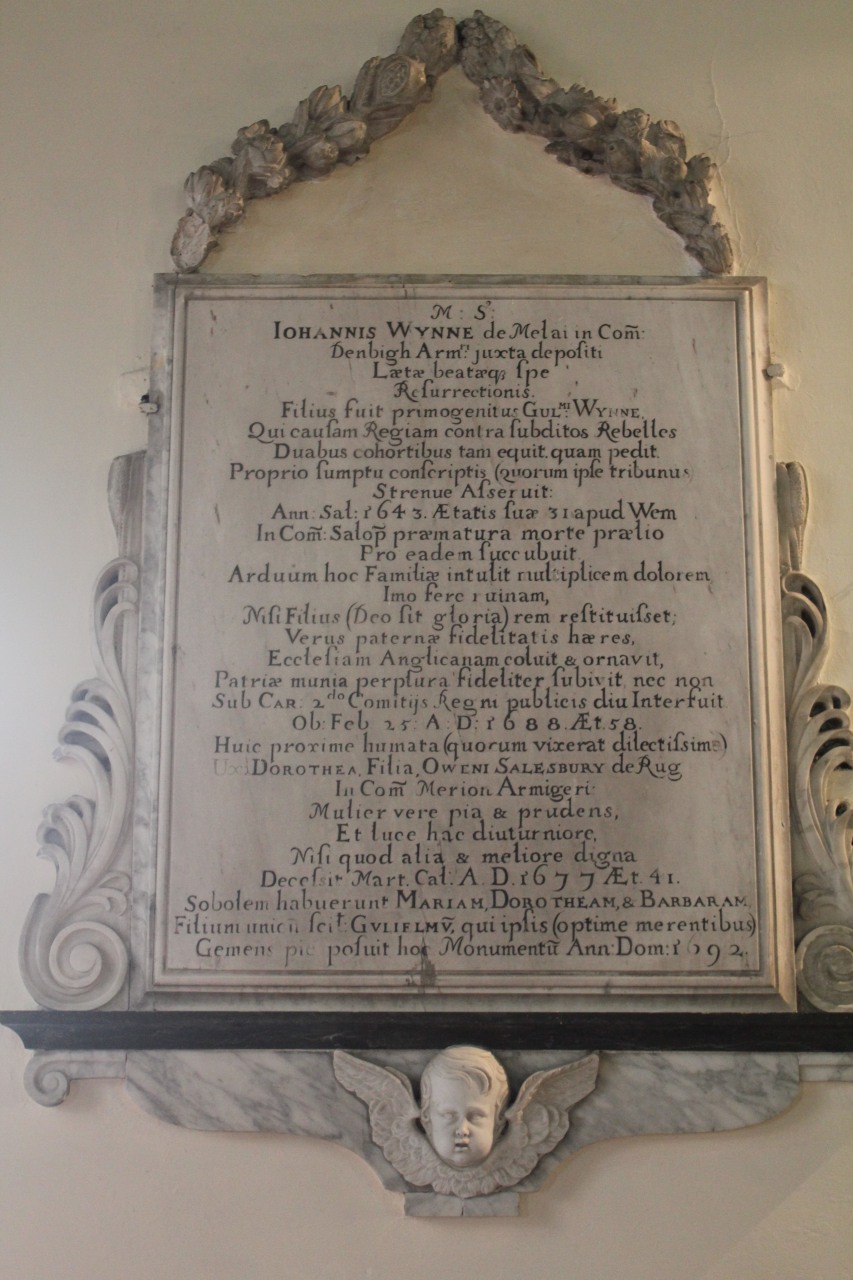 M: S:
IOHANNIS WYNNE de Melai in Com̃:
Denbigh Armri juxta depoſiti
Lætæ beatæq; ſpe
Reſurrectionis.
Filius fuit primogenitus GULmi: WYNNE,
Qui cauſam Regiam contra ſubditos Rebelles
Duabus cohortibus tam equit. quam pedit.
Proprio ſumptu conſcriptis (quorum ipſe tribunus
Strenue Aſseruit:
Ann: Sal: 1643. Ætatis ſuæ 31 apud Wem
In Com̃: Salop̃ præmatura morte prælio
Pro eadem ſuccubuit
Arduum hoc Familiæ intulit multiplicem dolorem
Imo fere ruinam,
Niſi Filius (Deo ſit gloria) rem reſtituiſset;
Verus paternæ fidelitatis hæres,
Eccleſiam Anglicanam coluit & ornavit,
Patriæ munia perplura fideliter ſubivit nec non
Sub CAR. 2do Comitijs Regni publicis diu Interfuit
Ob: Feb 25: A: D: 1688. Æt. 58.
Huic proxime humata (quorum vixerat dilectiſsima)
DOROTHEA, Filia, OWENI SALESBURY de Rug
In Com̃ Merion Armigeri:
Mulier vere pia & prudens,
Et luce hac diuturniore,
Niſi quod alia & meliore digna
Deceſsit Mart. Cal: A. D. 1677 Æt. 41.
Sobolem habuerunt MARIAM, DOROTHEAM, & BARBARAM
Filium unicũ ſcit: GVLIELMṼ, qui ipſis (optime merentibus)
Gemens pie poſuit hoc Monumentũ Ann: Dom: 1692.